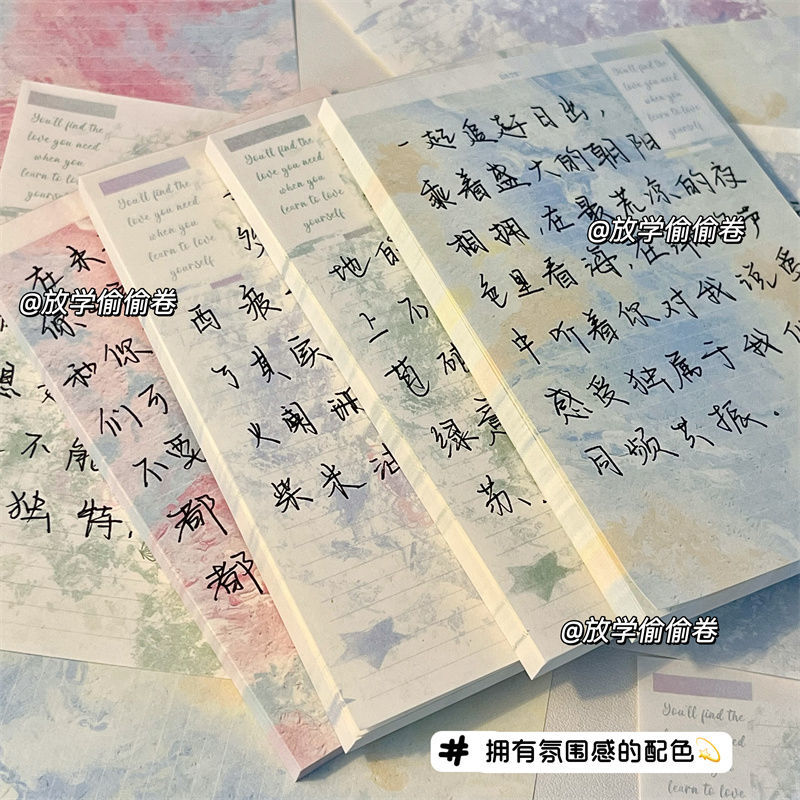 You'll find the
love you need
when you
learn to love
yourself
You'll find the
love you need
when you
learn to love
yourself
You'll find the
love you need
when you
learn to love
yourself
DATE
You'll find the
love you need
when you
learn to love
yourself
一起追赶日出，
乘着盛大的朝阳
相拥，在最荒凉的夜
色里看海，在
中听着你对我说爱
感受独属于我们
同频共振.
地的
上不
苞
绿意
苏.
西 疲
与其
火阑珊
柴米油
在未
你
和你
们可
不要
都
都
想
不能
独特.
@放学偷偷卷
@放学偷偷卷
@放学偷偷卷
You'll find the
love you need
when you
learn to love
# 拥有氛围感的配色💫